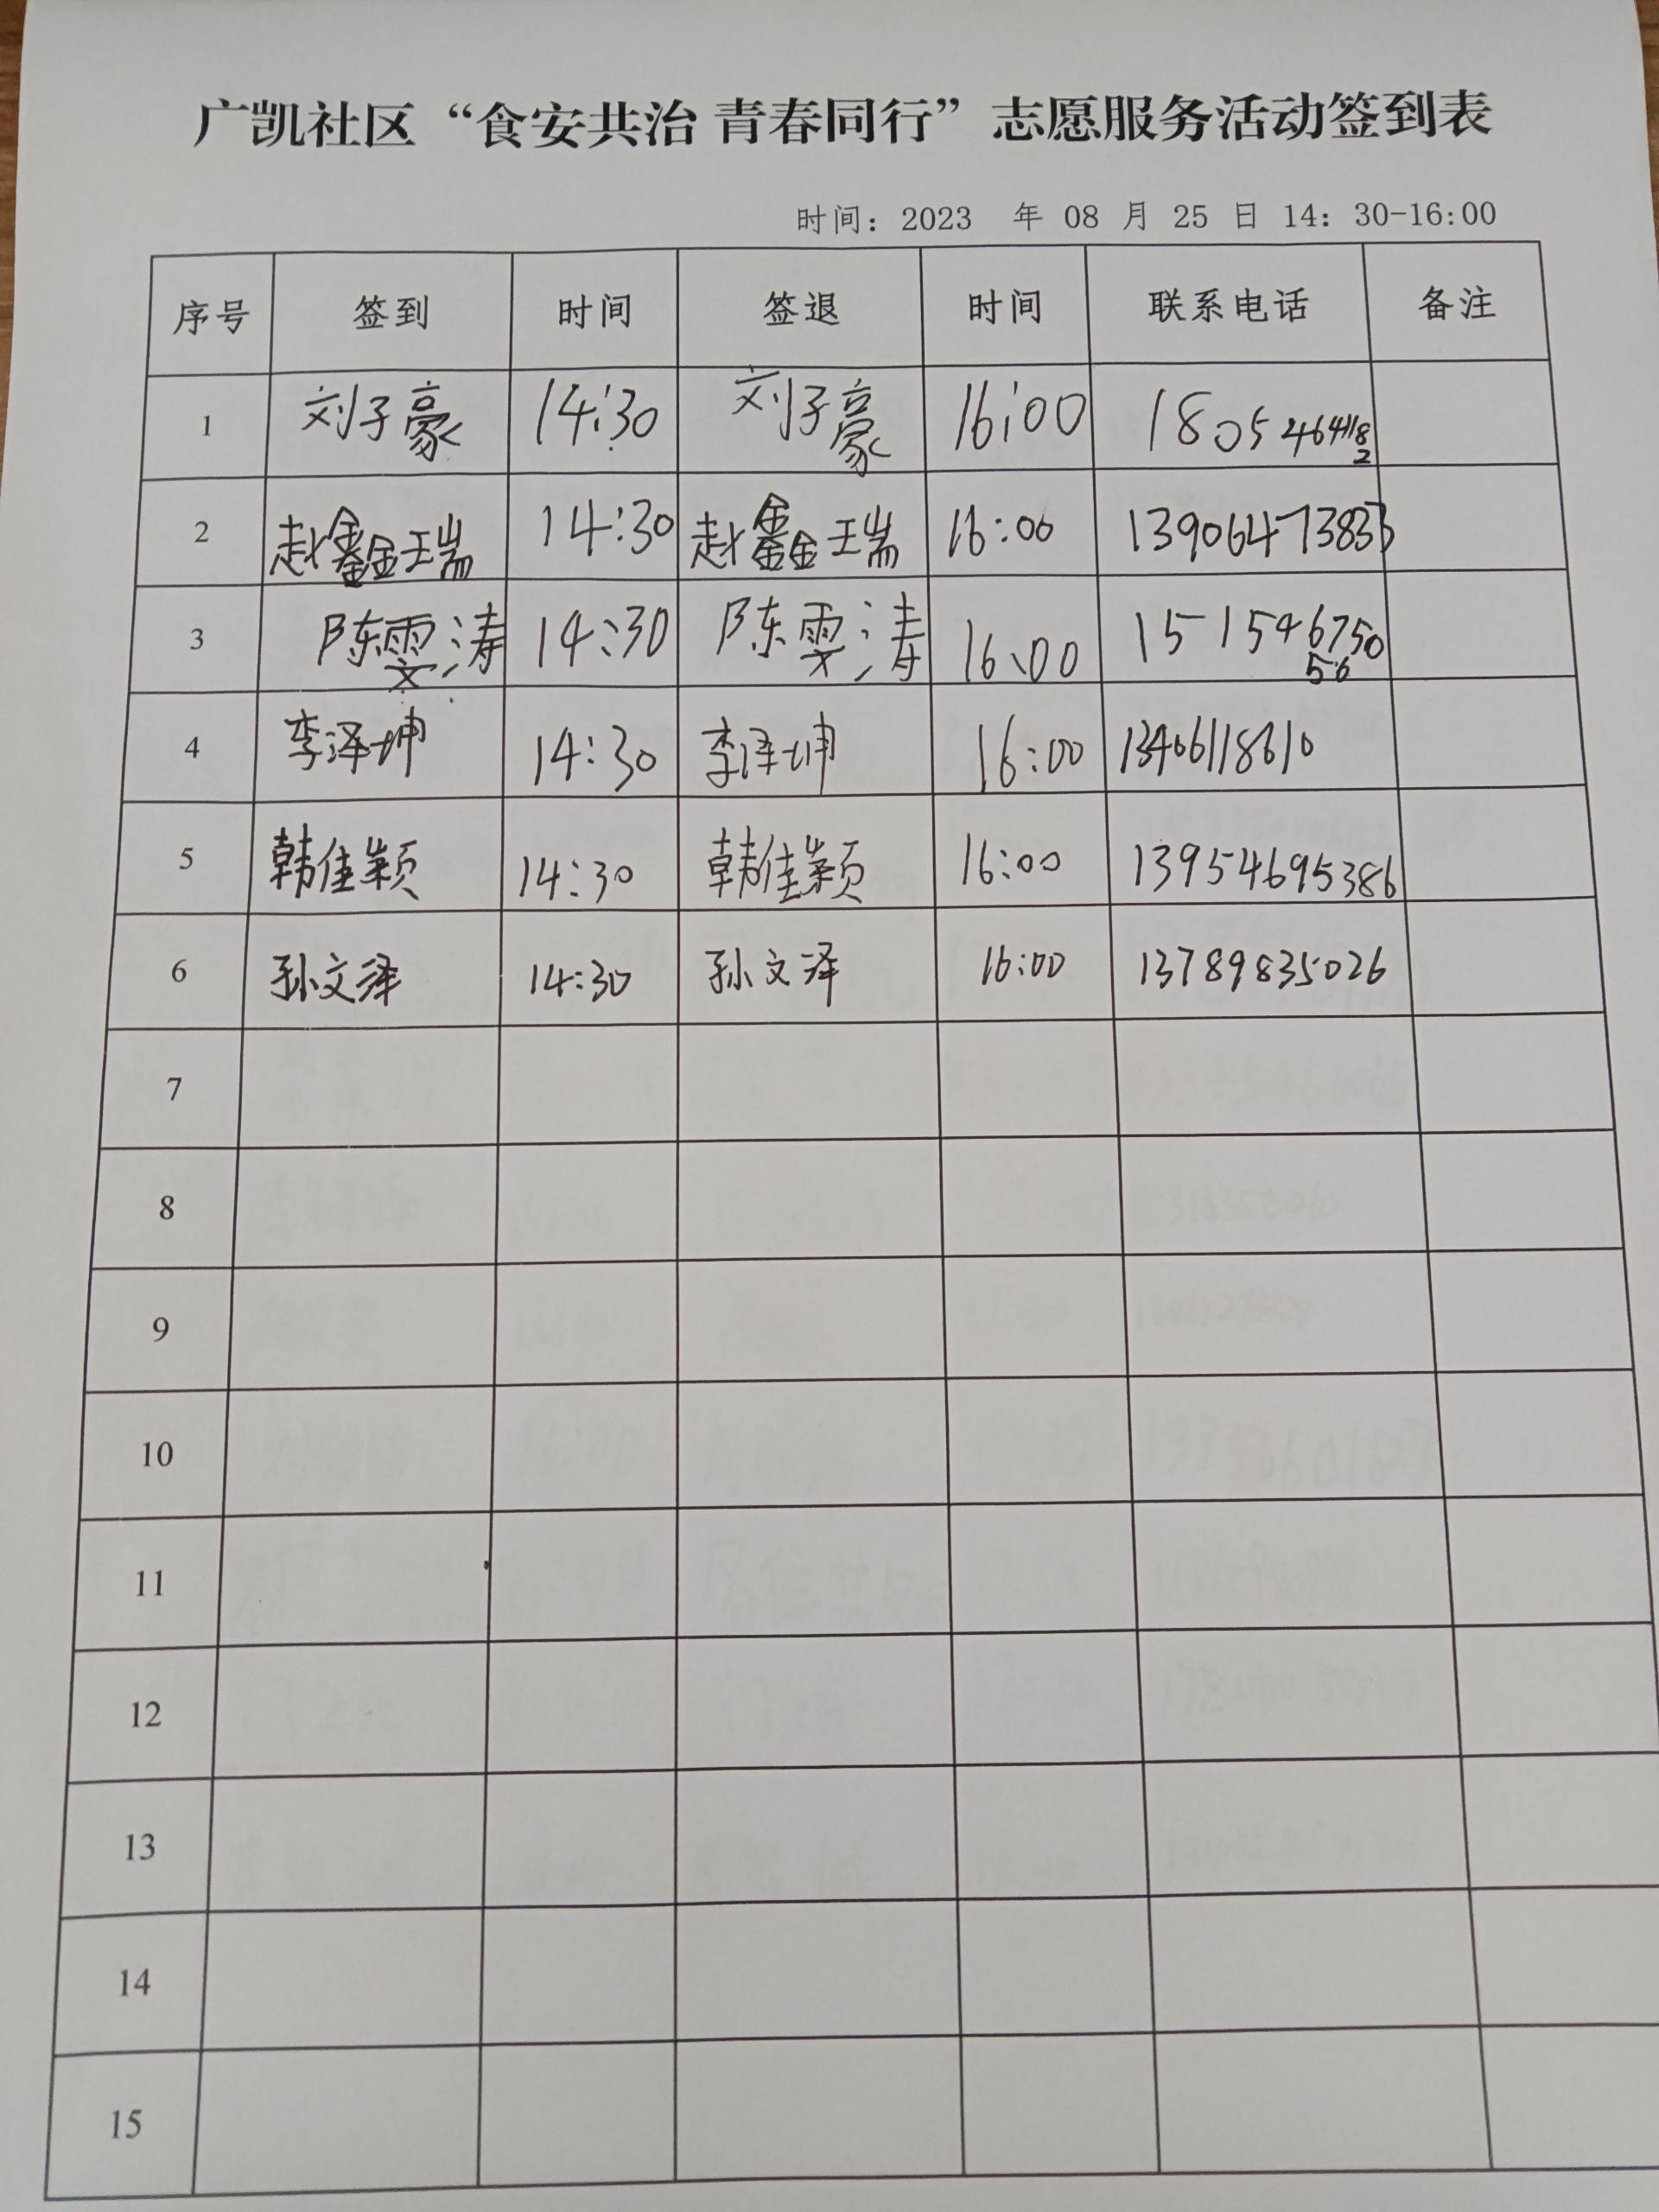 广凯社区“食安共治 青春同行”志愿服务活动签到表
时间：2023 年 08 月 25 日 14：30-16:00
序号 签到 时间 签退 时间 联系电话 备注
1 刘子豪 14:30 刘子豪 16:00 18054644182
2 赵鑫瑞 14:30 赵鑫瑞 16:00
3 陈雯涛 14:30 陈雯涛 16:00
4 李泽坤 14:30 李泽坤 16:00 13406118610
5 韩佳颖 14:30 韩佳颖 16:00 13954695386
6 孙文泽 14:30 孙文泽 16:00 13789835026
7
8
9
10
11
12
13
14
15